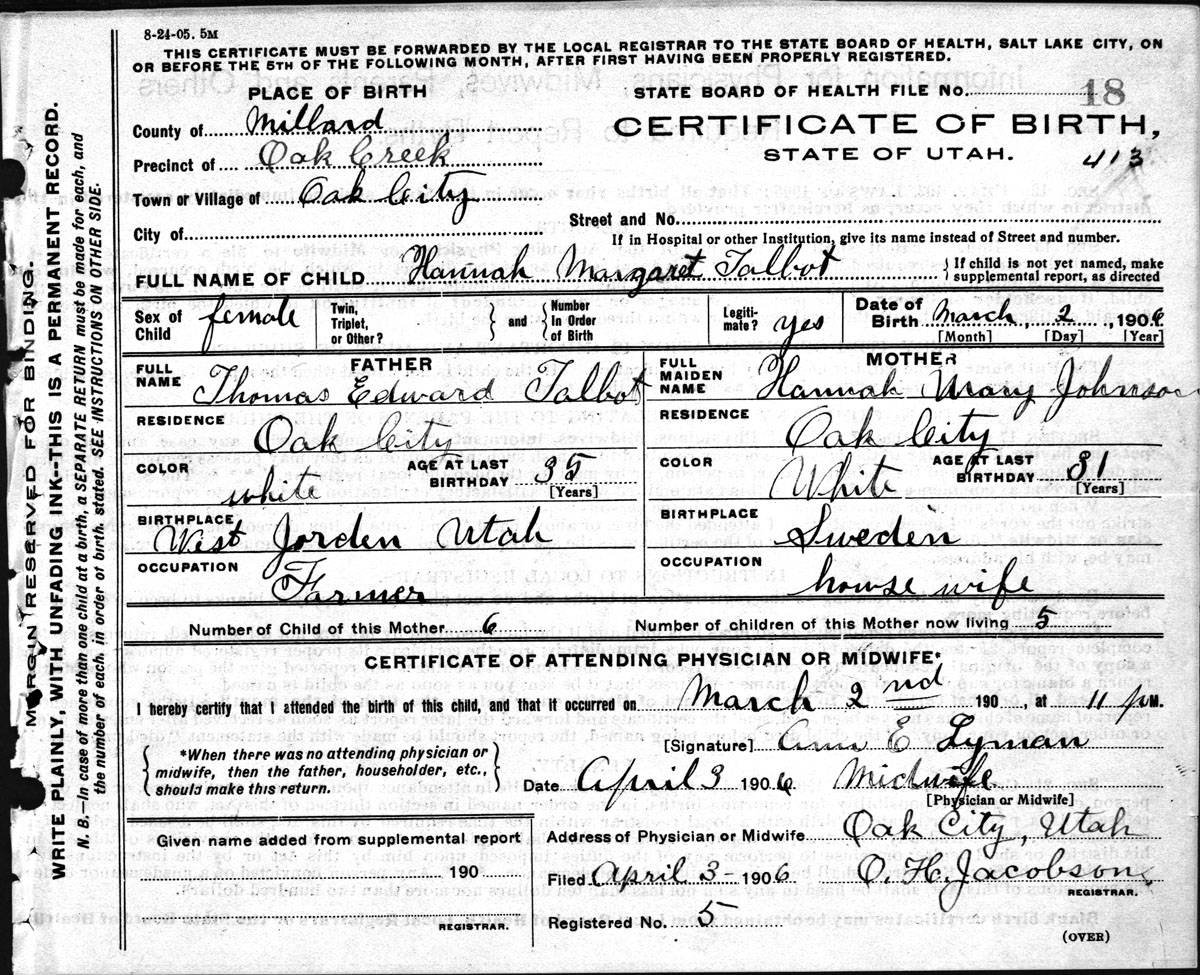 8-24-05. 5M
THIS CERTIFICATE MUST BE FORWARDED BY THE LOCAL REGISTRAR TO THE STATE BOARD OF HEALTH, SALT LAKE CITY, ON
OR BEFORE THE 5TH OF THE FOLLOWING MONTH, AFTER FIRST HAVING BEEN PROPERLY REGISTERED.
PLACE OF BIRTH
STATE BOARD OF HEALTH FILE No. 18
County of Millard
CERTIFICATE OF BIRTH,
Precinct of Oak Creek
STATE OF UTAH. 413
Town or Village of Oak City
City of
Street and No.
If in Hospital or other Institution, give its name instead of Street and number.
FULL NAME OF CHILD Hannah Margaret Talbot } If child is not yet named, make
supplemental report, as directed
Sex of Child female
Twin, Triplet, or Other? } and { Number In Order of Birth
Legiti-mate? yes
Date of Birth March, 2, 1906
[Month] [Day] [Year]
FATHER
FULL NAME Thomas Edward Talbot
RESIDENCE Oak City
COLOR white
AGE AT LAST BIRTHDAY 35
[Years]
BIRTHPLACE West Jorden Utah
OCCUPATION Farmer
MOTHER
FULL MAIDEN NAME Hannah Mary Johnson
RESIDENCE Oak City
COLOR White
AGE AT LAST BIRTHDAY 31
[Years]
BIRTHPLACE Sweden
OCCUPATION house wife
Number of Child of this Mother 6
Number of children of this Mother now living 5
CERTIFICATE OF ATTENDING PHYSICIAN OR MIDWIFE*
I hereby certify that I attended the birth of this child, and that it occurred on March 2nd 190, at 11 PM.
{ *When there was no attending physician or
midwife, then the father, householder, etc.,
should make this return. }
[Signature] Ann E Lyman
Date April 3 1906. Midwife
[Physician or Midwife]
Given name added from supplemental report
190
REGISTRAR.
Address of Physician or Midwife Oak City, Utah
Filed April 3- 1906. O. H. Jacobson
REGISTRAR.
Registered No. 5
(OVER)
MARGIN RESERVED FOR BINDING.
WRITE PLAINLY, WITH UNFADING INK--THIS IS A PERMANENT RECORD.
N. B. In case of more than one child at a birth, a SEPARATE RETURN must be made for each, and
the number of each, in order of birth, stated. SEE INSTRUCTIONS ON OTHER SIDE.